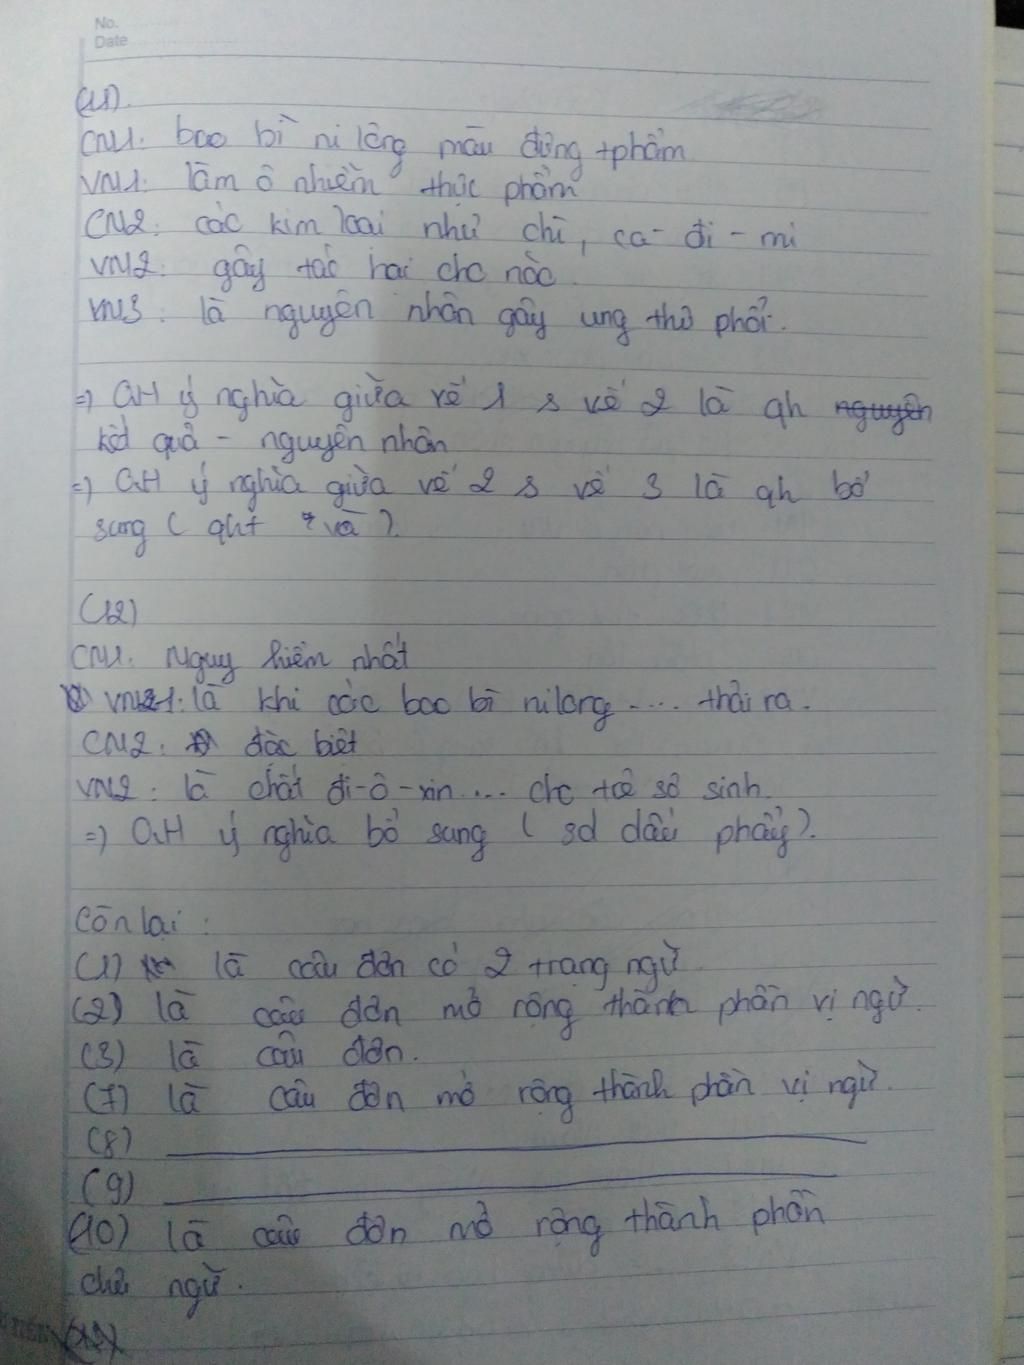 No.
Date
(11).
CN1: bao bì ni lông màu đựng tphẩm
VN1: làm ô nhiễm thực phẩm
CN2: các kim loại như chì, ca-đi-mi
VN2: gây tác hại cho não.
VN3: là nguyên nhân gây ung thư phổi.
=) QH ý nghĩa giữa vế 1 & vế 2 là qh nguyên
kết quả - nguyên nhân
=) QH ý nghĩa giữa vế 2 & vế 3 là qh bổ
sung ( qht "và ).
(12)
CN1: Nguy hiểm nhất
VN1: là khi các bao bì nilong .... thải ra.
CN2: đặc biệt
VN2: là chất đi-ô-xin ... cho trẻ sơ sinh.
=) QH ý nghĩa bổ sung ( sd dấu phẩy).
Còn lại :
(1) là câu đơn có 2 trạng ngữ.
(2) là câu đơn mở rộng thành phần vị ngữ.
(3) là câu đơn.
(7) là câu đơn mở rộng thành phần vị ngữ.
(8)
(9)
(10) là câu đơn mở rộng thành phần
chủ ngữ.